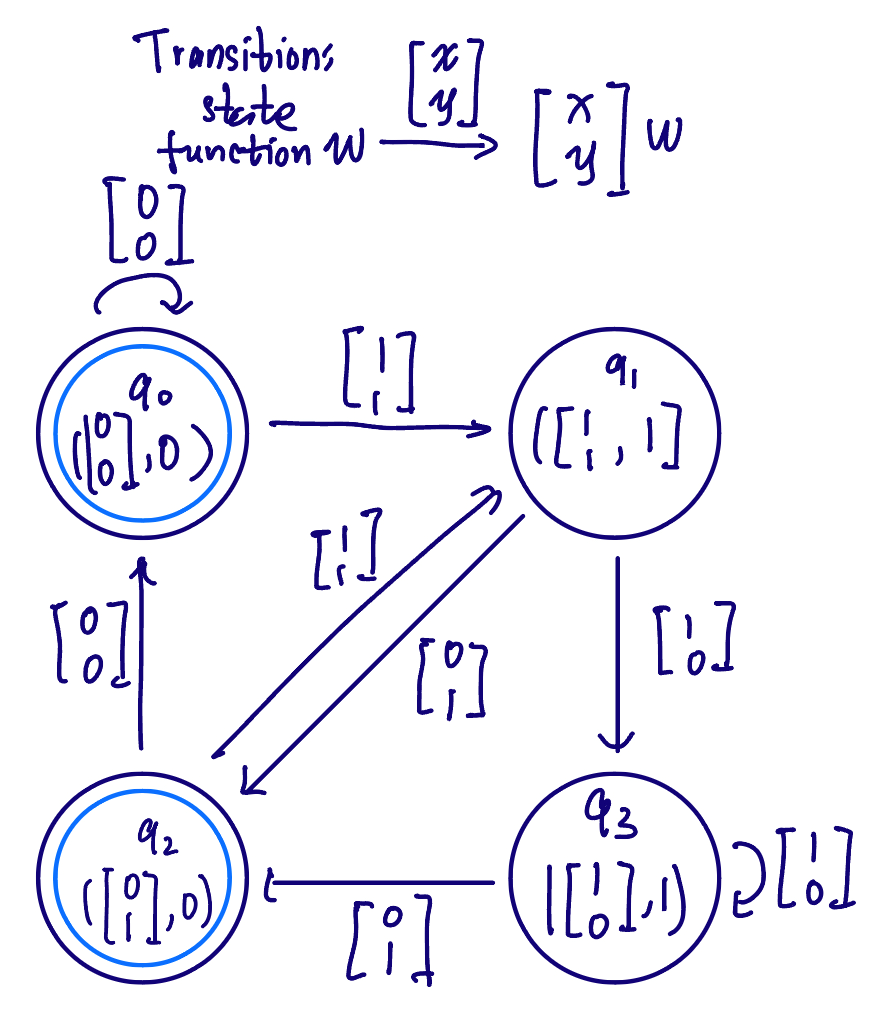 Transitions
state
function W
[x
y]
[x
y] W
[0
0]
[1
1]
q0
([0
0], 0)
q1
([1
1, 1]
[1
1]
[0
0]
[0
1]
[1
0]
q2
([0
1], 0)
q3
([1
0], 1)
[1
0]
[0
1]